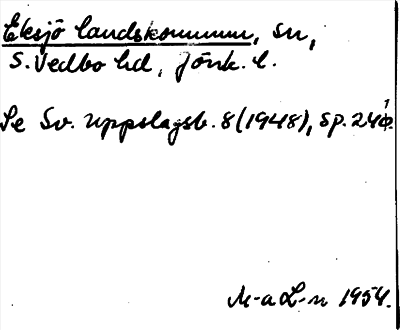 Eksjö landskommun, sn,
S. Vedbo hd, Jönk. l.
Se Sv. Uppslagsb. 8 (1948), sp. 241.
M-a L-n 1954.